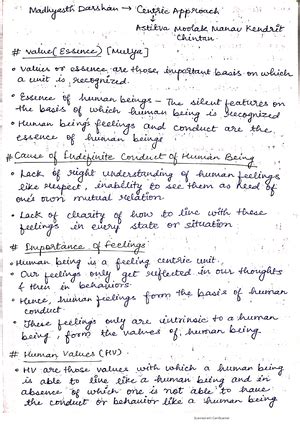 Madhyasth Darshan → Centric Approach
↓
Astitva Moolak Manav Kendrit
Chintan.
# Value (Essence) [Mulya]
• Values or essence are those important basis on which
a unit is recognized.
• Essence of human beings - The silent features on
the basis of which human being is recognized
• Human being's feelings and conduct are the
essence of human beings
# Cause of Indefinite Conduct of Human Being
• Lack of right understanding of human feelings
like respect, inability to see them as need of
one's own mutual relation
• Lack of clarity of how to live with these
feelings in every state or situation
# Importance of Feelings
• Human being is a feeling centric unit,
• Our feelings only get reflected in our thoughts
& then in behaviors
• Hence, human feelings form the basis of human
conduct
• These feelings only are intrinsic to a human
being, form the values of human being.
# Human Values (HV)
• HV are those values with which a human being
is able to live like a human being and in
absence of which one is not able to have
the conduct or behavior like a human being
Scanned with CamScanner